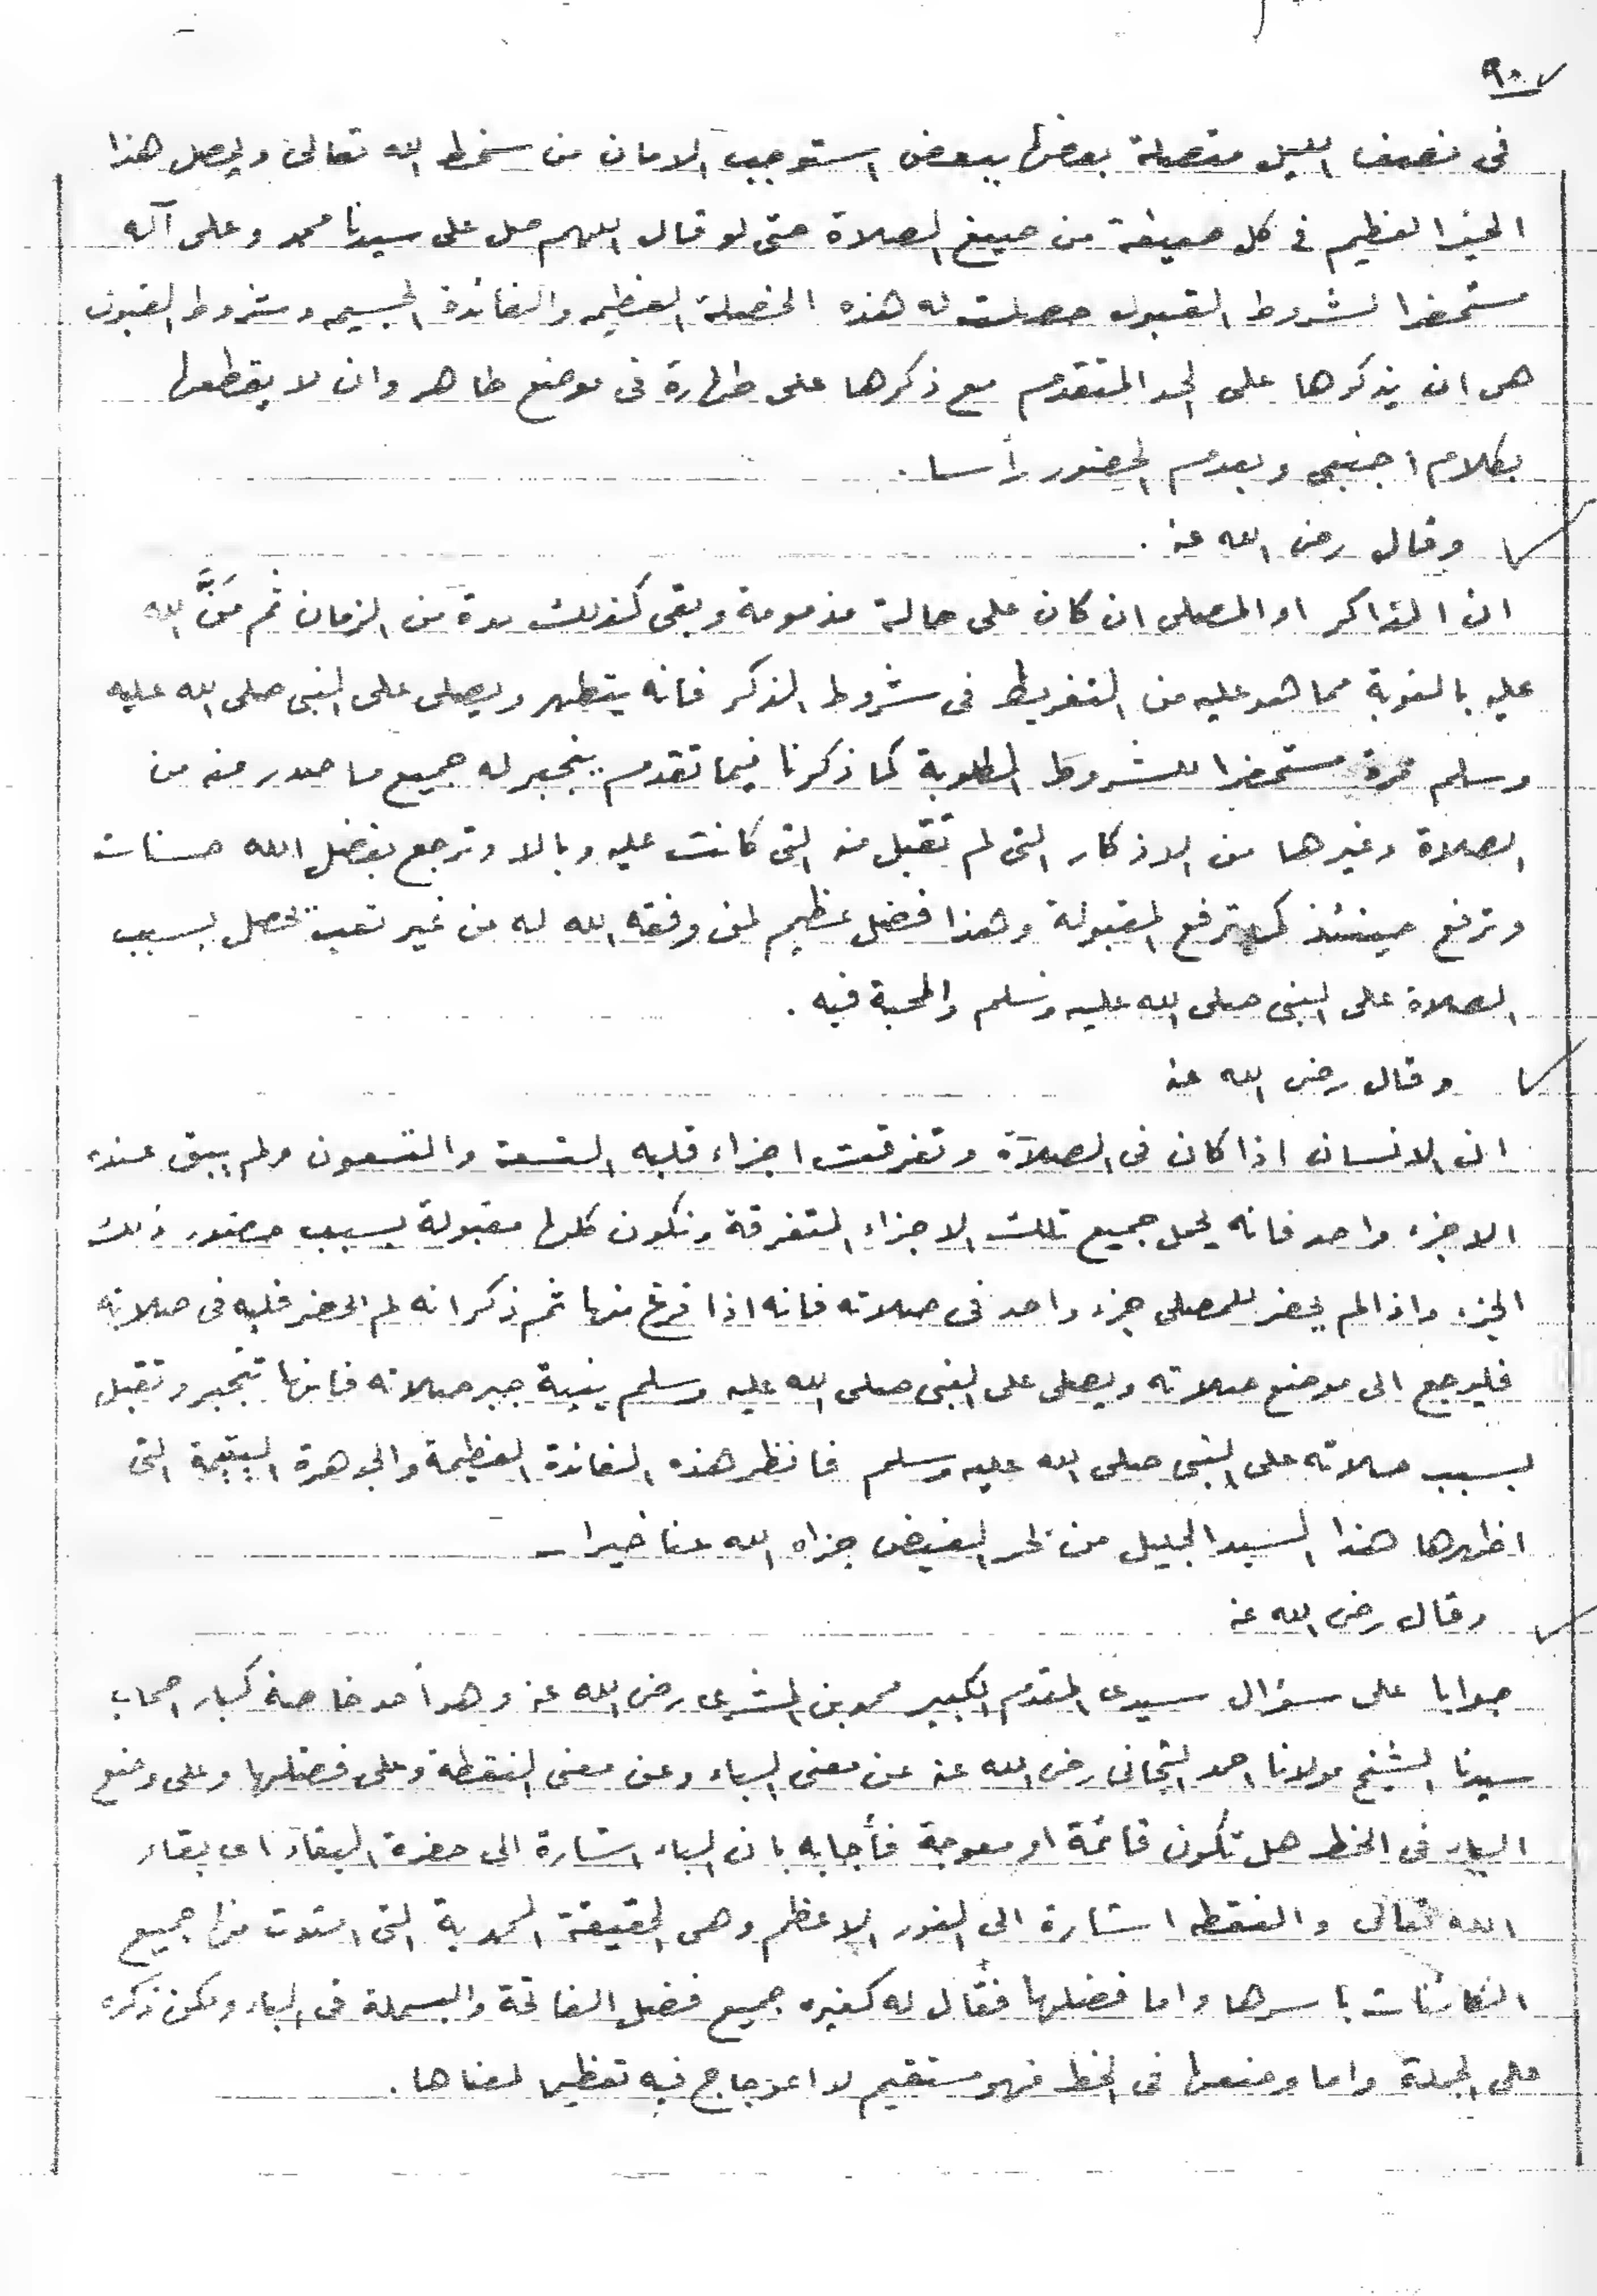 ٩٠٧
فى نصف الليل متصلة بعضها ببعض استوجب الامان من سخط الله تعالى ويحصل هذا
الخير العظيم فى كل صيغة من صيغ الصلاة حتى لو قال اللهم صل على سيدنا محمد وعلى آله
مستحضرا لشروط القبول حصلت له هذه الخصلة العظيمه والفائدة الجسيمه وشروط القبول
هى ان يذكرها على الحد المتقدم مع ذكرها على طهارة فى موضع طاهر وان لا يقطعها
بكلام اجنبى وبعدم الحضور رأسا .
وقال رضى الله عنه .
ان الذاكر او المصلى ان كان على حالة مذمومة وبقى كذلك مدة من الزمان ثم مَنَّ الله
عليه بالتوبة مما هو عليه من التفريط فى شروط الذكر فانه يتطهر ويصلى على النبى صلى الله عليه
وسلم مرة مستحضرا للشروط المطلوبة كما ذكرنا فيما تقدم ينجبر له جميع ما صدر منه من
الصلاة وغيرها من الاذكار التى لم تقبل منه التى كانت عليه وبالا وترجع بفضل الله حسنات
وترفع حينئذ كما ترفع المقبولة وهذا فضل عظيم لمن وفقه الله له من غير تعب تحصل بسبب
الصلاة على النبى صلى الله عليه وسلم والمحبة فيه .
وقال رضى الله عنه
ان الانسان اذا كان فى الصلاة وتفرقت اجزاء قلبه التسعة والتسعون ولم يبق عنده
الا جزء واحد فانه يحمل جميع تلك الاجزاء المتفرقة وتكون كلها مقبولة بسبب حضور ذلك
الجزء واذا لم يحضر للمصلى جزء واحد فى صلاته فانه اذا فرغ منها ثم ذكر انه لم يحضر قلبه فى صلاته
فليرجع الى موضع صلاته ويصلى على النبى صلى الله عليه وسلم بنية جبر صلاته فانها تنجبر وتقبل
بسبب صلاته على النبى صلى الله عليه وسلم فانظر هذه الفائدة العظيمة والجوهرة اليتيمة التى
اظهرها هذا السيد الجليل من بحر الفيض جزاه الله عنا خيرا
وقال رضى الله عنه
جوابا على سؤال سيدى المقدم الكبير محمد بن المشرى رضى الله عنه وهو أحد خاصة كبار اصحاب
سيدنا الشيخ مولانا احمد التجانى رضى الله عنه عن معنى الباء وعن معنى النقطة وعلى فضلها وعلى وضع
الباء فى الخط هل تكون قائمة او معوجة فأجابه بان الباء اشارة الى حضرة البقاء اى بقاء
الله تعالى والنقطه اشارة الى النور الاعظم وهى الحقيقة المحمدية التى امتدت منها جميع
الكائنات باسرها واما فضلها فقال له كغيره جميع فضل الفاتحة والبسملة فى الباء ويكون ذكره
على الجملة واما وضعها فى الخط فهو مستقيم لا اعوجاج فيه تعظيما لمعناها .